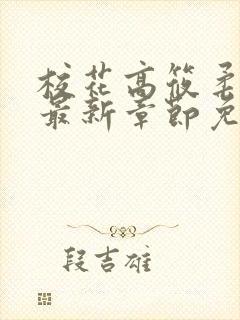 校花高筱柔
最新章節免
段吉雄